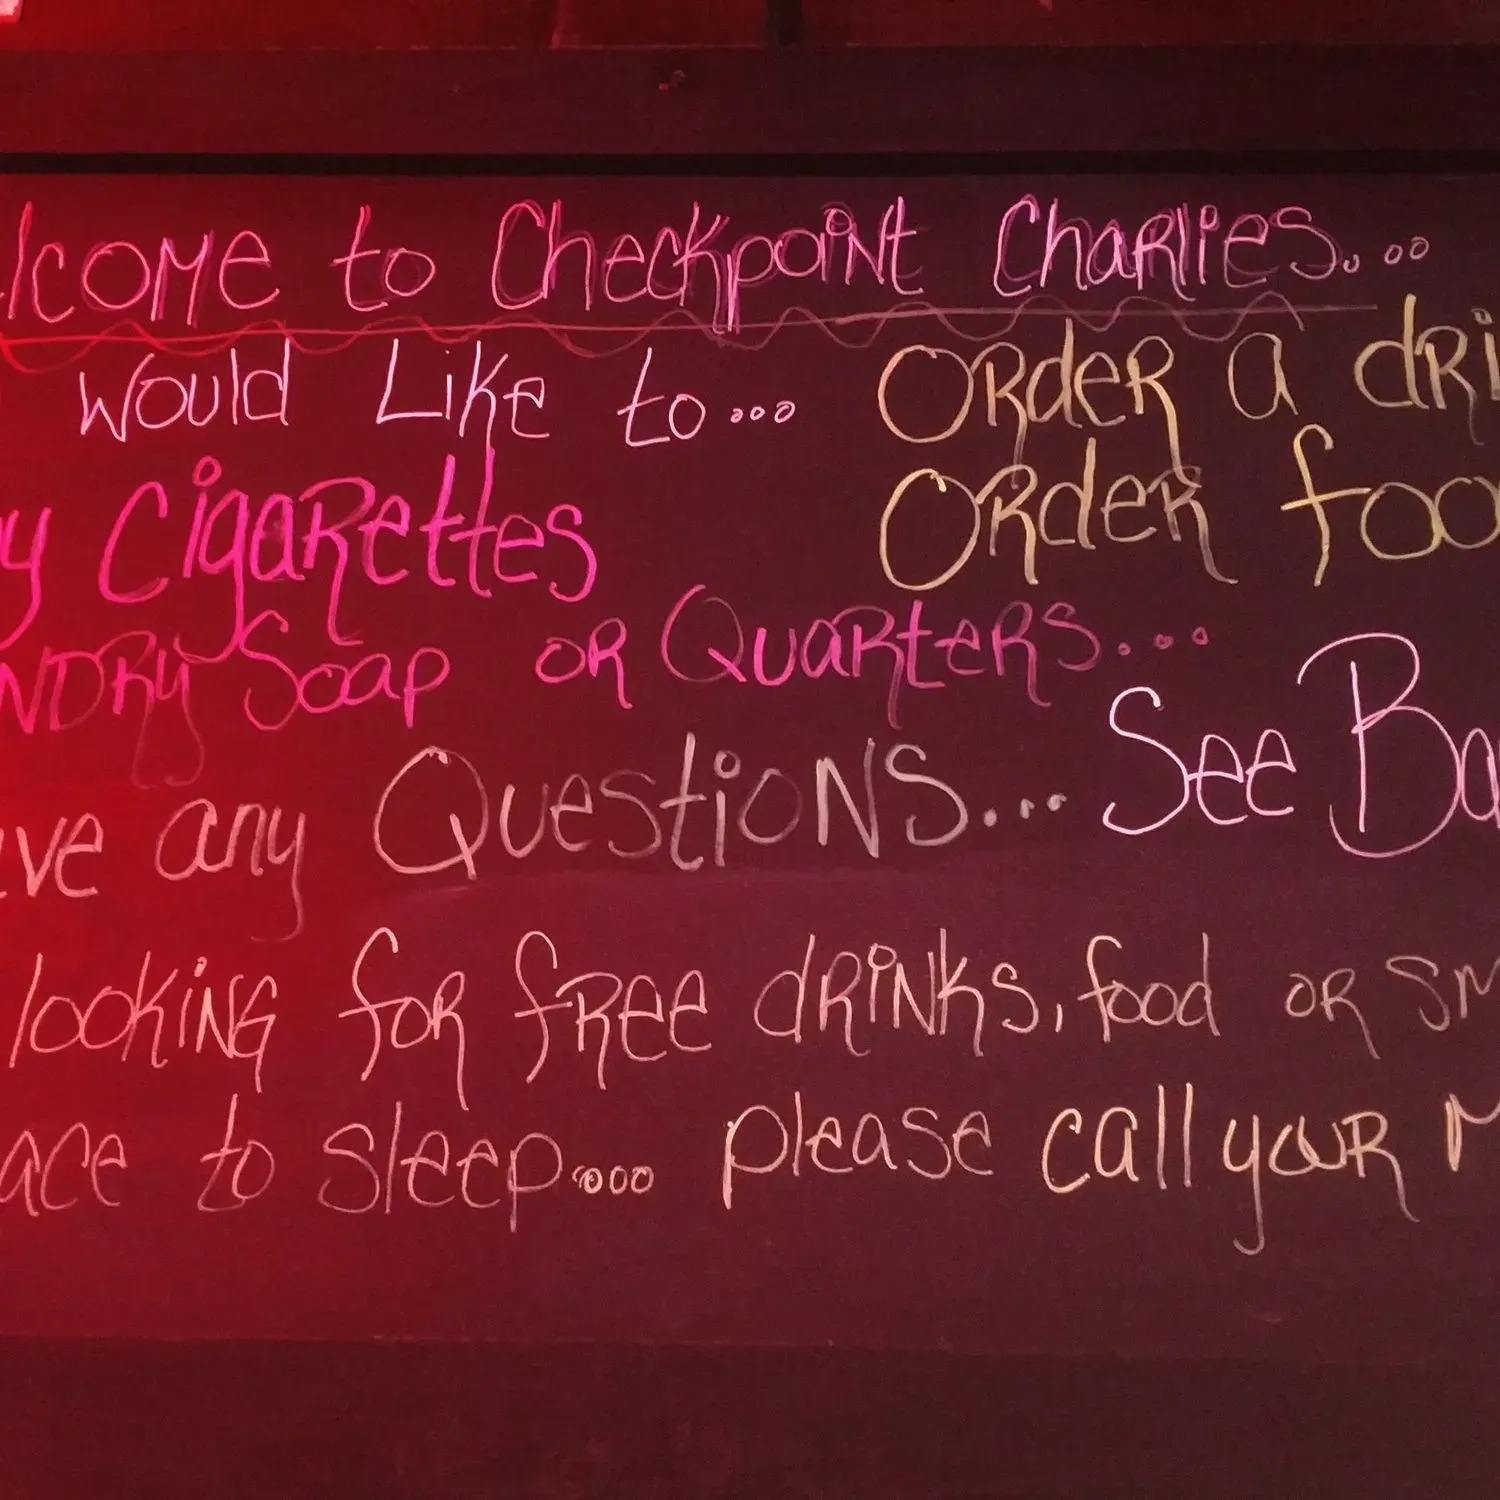 lcome to Checkpoint Charlies...
would Like to... Order a dri
y Cigarettes Order foo
NDRY Soap or Quarters....
ve any Questions... See Ba
looking for free drinks, food or sm
ace to sleep.... please call your M